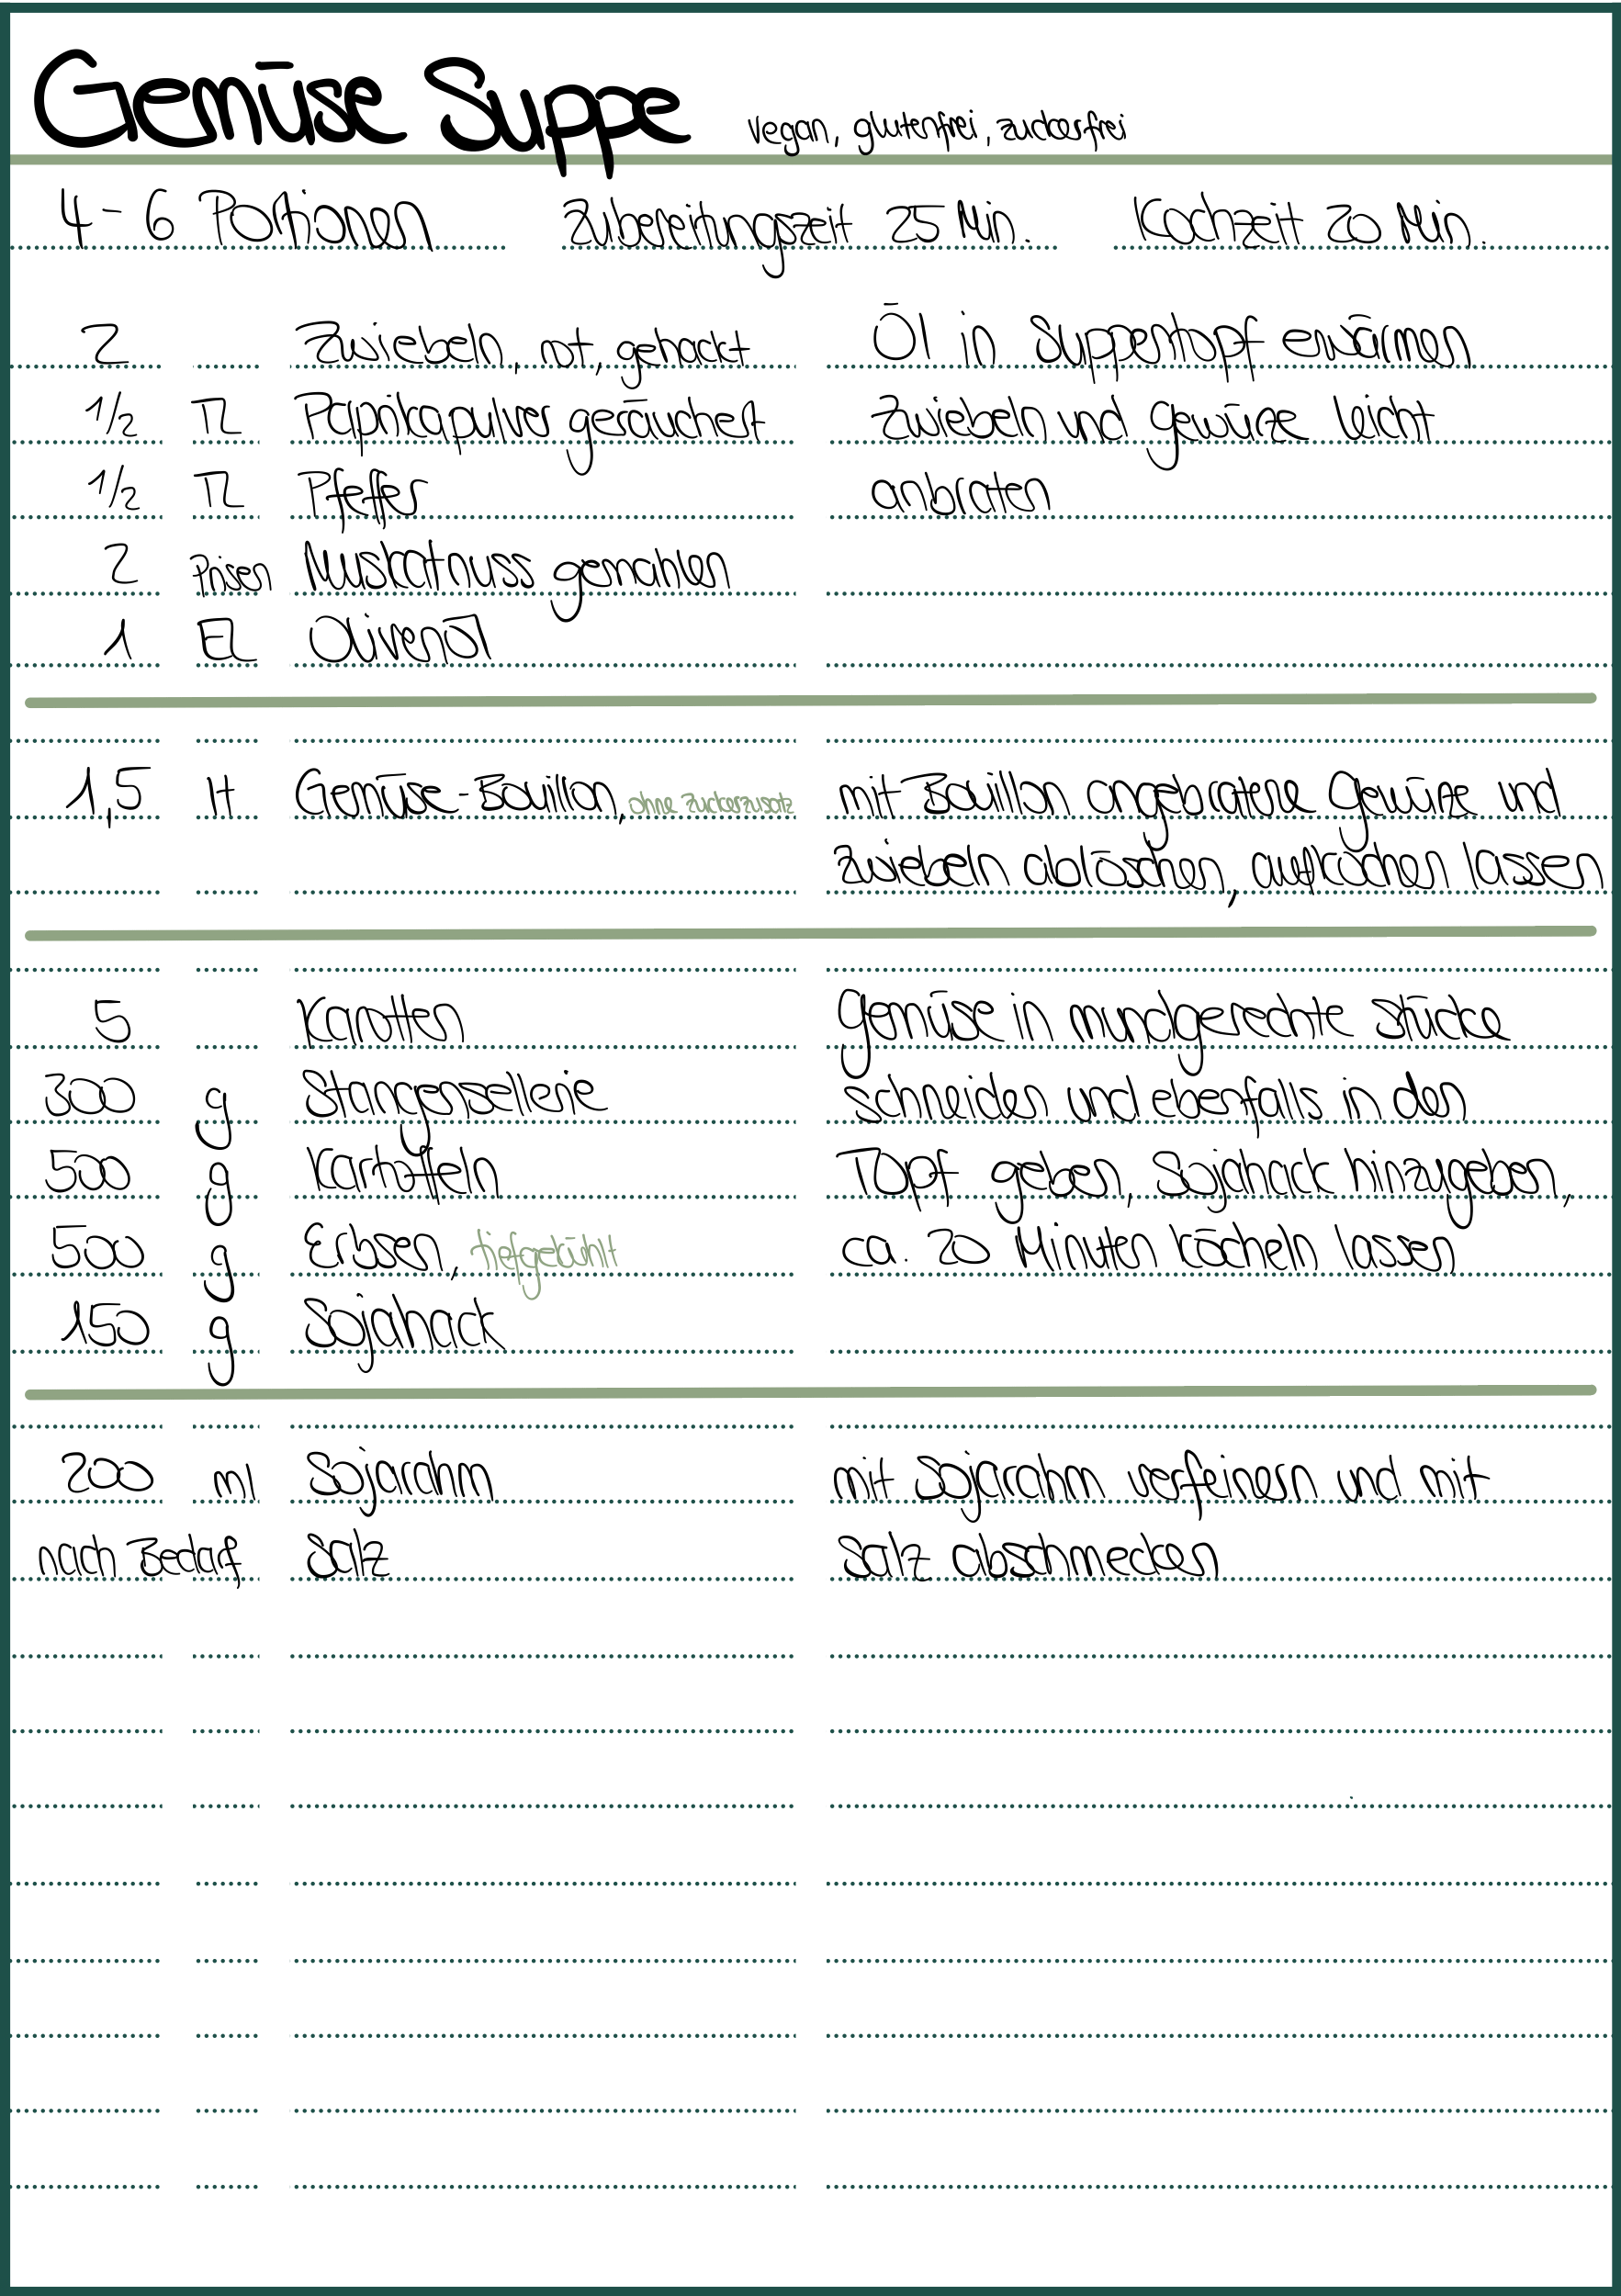 Gemüse Suppe vegan, glutenfrei, zuckerfrei
4-6 Portionen Zubereitungszeit 25 Min. Kochzeit 20 Min.
2 Zwiebeln, rot, gehackt Öl in Suppentopf erwärmen
1/2 TL Paprikapulver geräuchert Zwiebeln und Gewürze leicht
1/2 TL Pfeffer anbraten
2 Prisen Muskatnuss gemahlen
1 EL Olivenöl
1,5 lt Gemüse-Bouillon, ohne Zuckerzusatz mit Bouillon angebratene Gewürze und
Zwiebeln ablöschen, aufkochen lassen
5 Karotten Gemüse in mundgerechte Stücke
300 g Stangensellerie schneiden und ebenfalls in den
500 g Kartoffeln Topf geben, Sojahack hinzugeben,
500 g Erbsen, tiefgekühlt ca. 20 Minuten köcheln lassen
150 g Sojahack
200 ml Sojarahm mit Sojarahm verfeinern und mit
nach Bedarf Salz Salz abschmecken